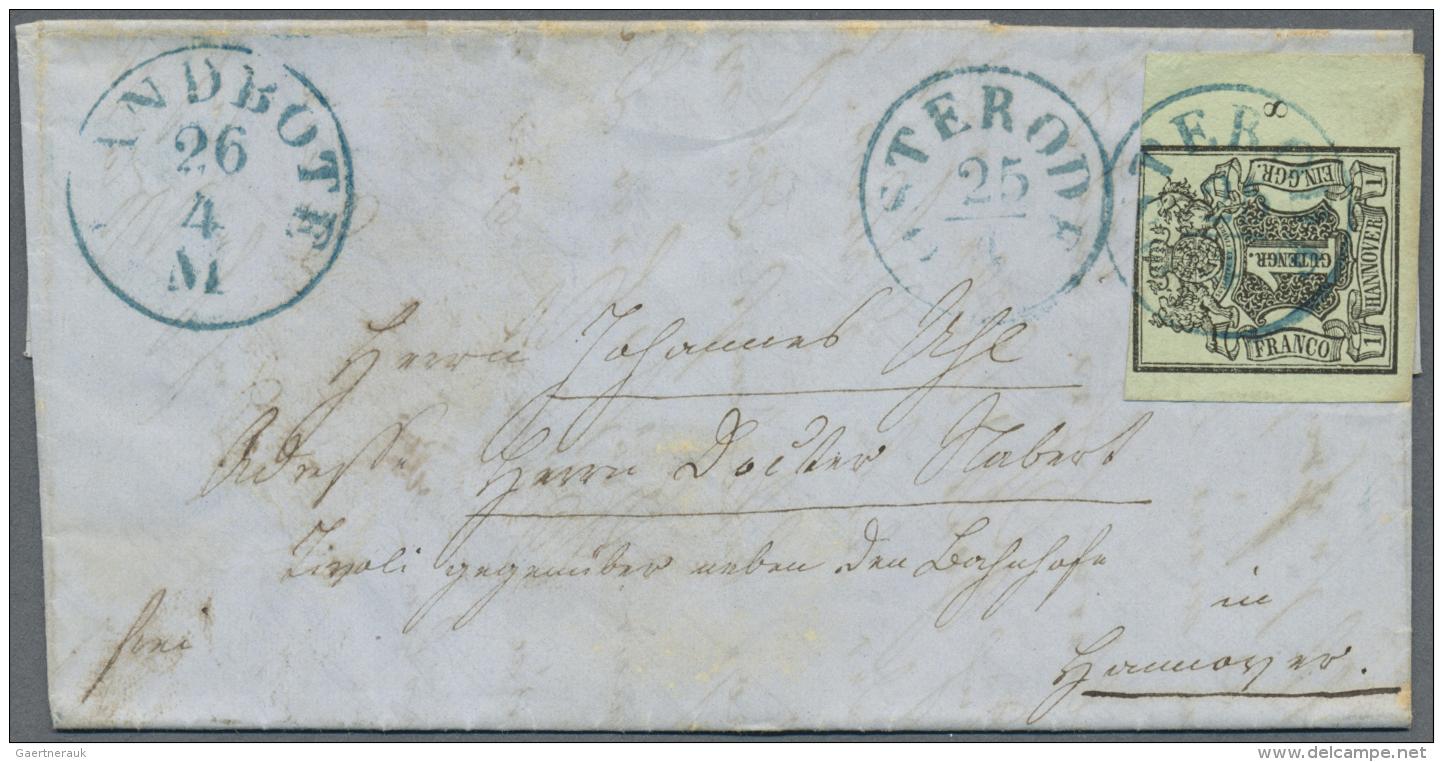 LANDBOTE
26
4
M
OSTERODE
25
4
8
EIN GGR.
1
HANNOVER
1
GUTENGR.
FRANCO
1
Herrn Johannes Uhl
Adresse Herrn Docter Nabert
Tivoli gegenüber neben den Bahnhofe
in
frei
Hannover.
Gaertnerauk
www.delcampe.net